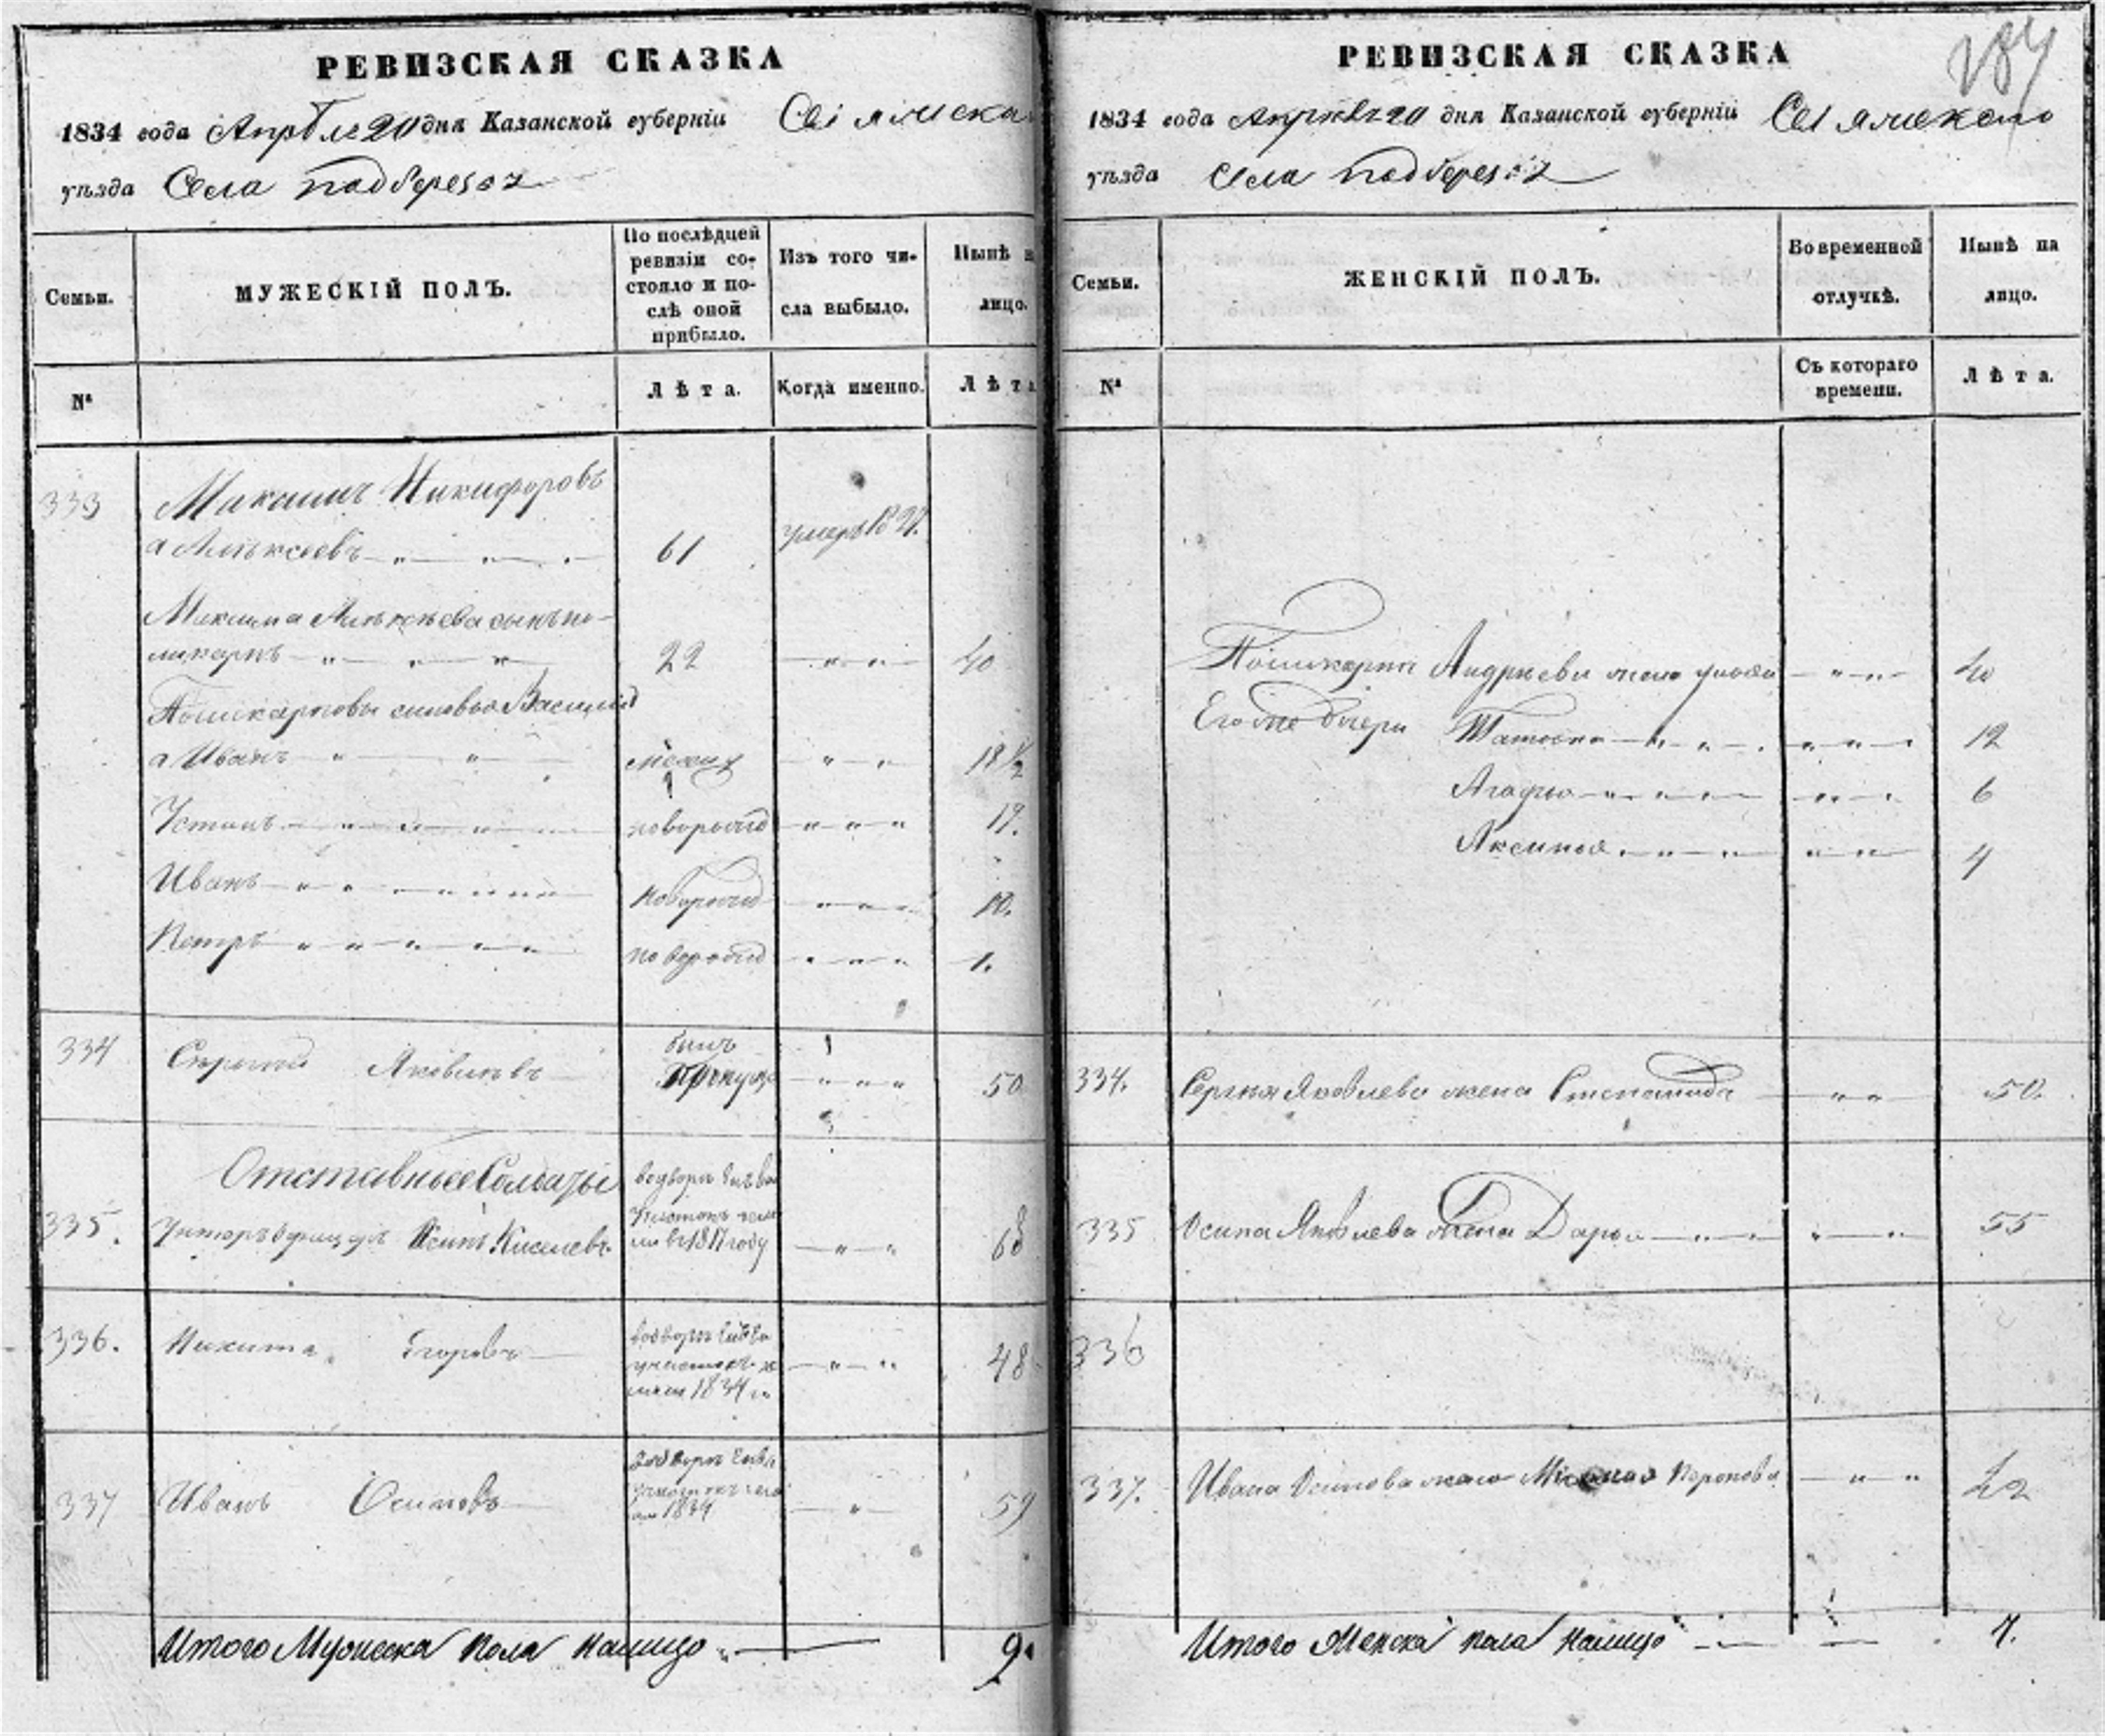 РЕВИЗСКАЯ СКАЗКА
1834 года Апрѣля 20 дня Казанской губерніи Свіяжска
уѣзда Села подберезья
Семьи.
МУЖЕСКІЙ ПОЛЪ.
По послѣдней
ревизіи со-
стояло и по-
слѣ оной
прибыло.
Изъ того чи-
сла выбыло.
Нынѣ на
лицо.
№
Лѣта.
Когда именно.
Лѣта
333
Максимъ Никифоровъ
а Алексеевъ
61
умеръ 1827.
Максима Алексѣева сынъ по-
ликарпъ
22
40
Поликарповы сыновья Василий
а Иванъ
18½
Устинъ
новорожд
17.
Иванъ
новорожд
10.
Петръ
новорожд
1.
334
Яковлевъ
былъ
50
Отставные Солдаты
335.
Унтеръ Офицеръ Осипъ Киселевъ
1817 году
68
336.
Никита Егоровъ
участокъ
1834
48
337
Иванъ Осиповъ
1834
59
Итого Мужеска пола налицо
9.
184
РЕВИЗСКАЯ СКАЗКА
1834 года Апрѣля 20 дня Казанской губерніи Свіяжскаго
уѣзда Села подберезья
Семьи.
ЖЕНСКІЙ ПОЛЪ.
Во временной
отлучкѣ.
Нынѣ на
лицо.
№
Съ котораго
времени.
Лѣта.
Поликарпа Андреева жена
40
Его же дочери Татьяна
12
Агафья
6
Аксинья
4
334.
Сергѣя Яковлева жена Степанида
50.
335
Осипа Яковлева жена Дарья
55
336
337.
Ивана Осипова жена
42
Итого Женска пола налицо
7.